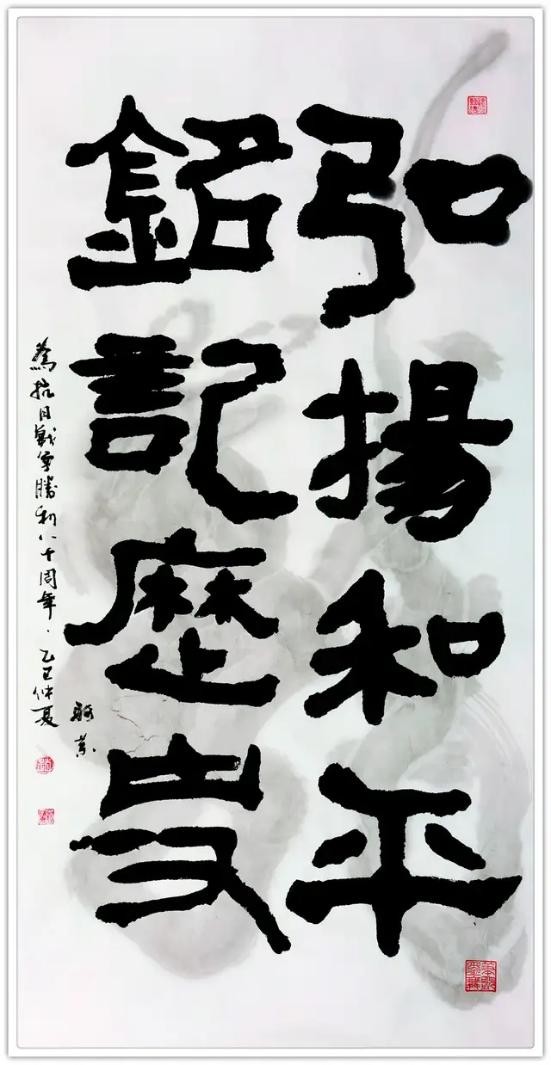 弘揚和平
銘記歷史
為抗日戰爭勝利八十周年·乙巳仲夏